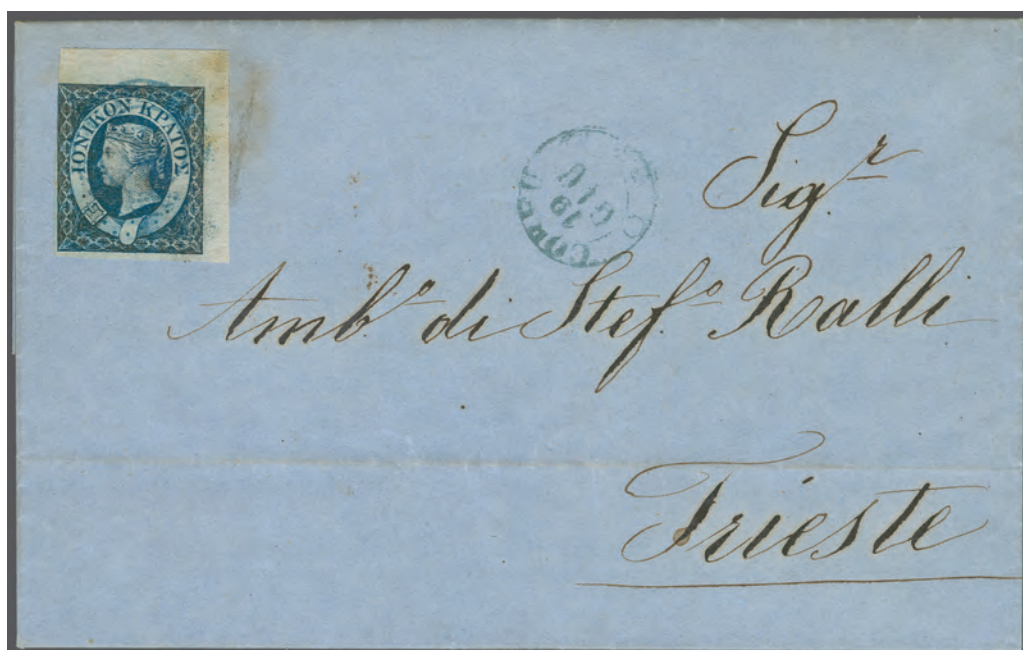 ΙΟΝΙΚΟΝ ΚΡΑΤΟΣ
CORFU
19
GIU
Sig.r
Amb.o di Stef.o Ralli
Trieste